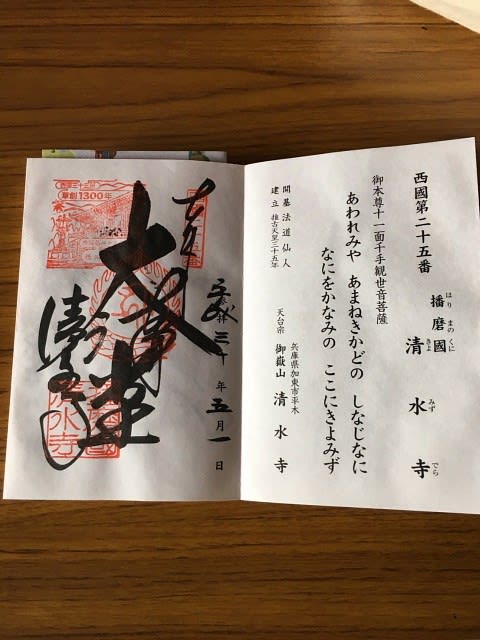 西國第二十五番
播磨國 清水寺
はり まの くに きよ みず でら
御本尊十一面千手観世音菩薩
あわれみや あまねきかどの しなじなに
なにをかなみの ここにきよみず
開基 法道仙人
建立 推古天皇三十五年
兵庫県加東市平木
天台宗 御嶽山 清水寺
奉拝
平成三十年五月一日
大悲
清水寺
草創1300年